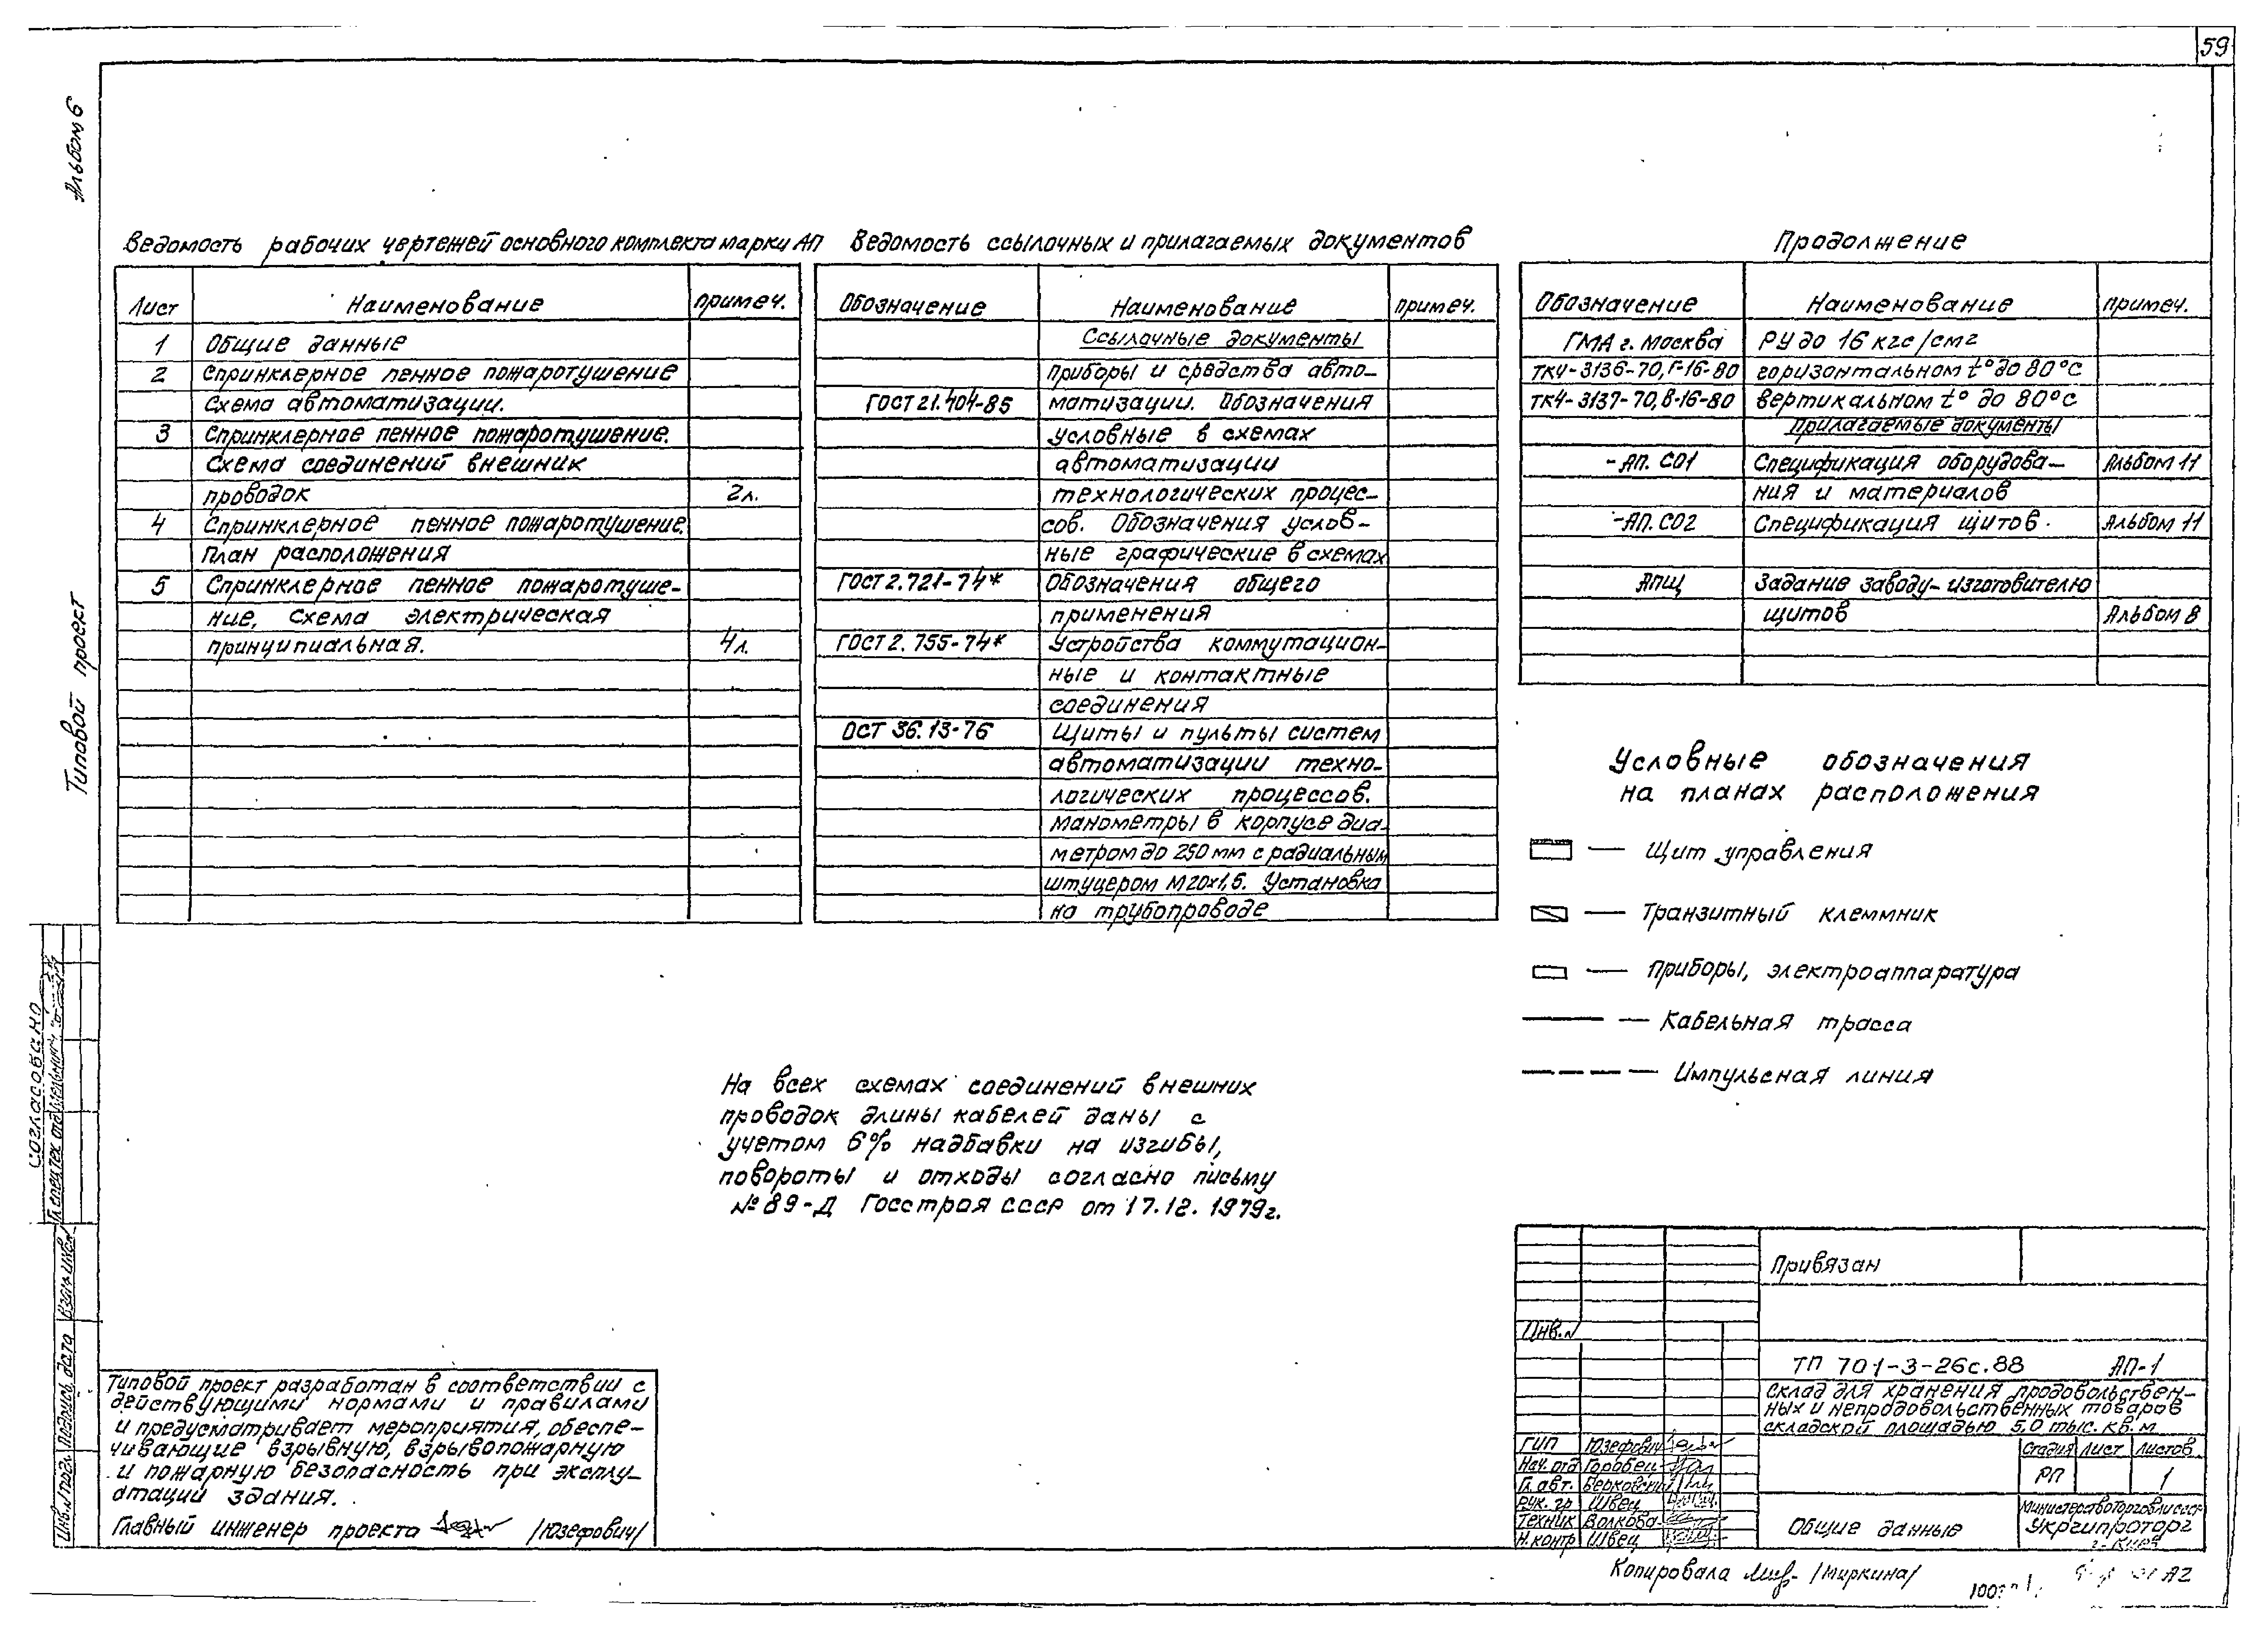 59
Альбом 6
Типовой проект
Ведомость рабочих чертежей основного комплекта марки АП
Лист Наименование примеч.
1 Общие данные
2 Спринклерное пенное пожаротушение
Схема автоматизации.
3 Спринклерное пенное пожаротушение.
Схема соединений внешник
проводок 2л.
4 Спринклерное пенное пожаротушение.
План расположения
5 Спринклерное пенное пожаротуше-
ние, Схема электрическая
принципиальная. 4л.
Ведомость ссылочных и прилагаемых документов
Обозначение Наименование примеч.
Ссылочные документы
приборы и средства авто-
ГОСТ 21.404-85 матизации. Обозначения
условные в схемах
автоматизации
технологических процес-
сов. Обозначения услов-
ные графические в схемах
ГОСТ 2.721-74* Обозначения общего
применения
ГОСТ 2.755-74* Устройства коммутацион-
ные и контактные
соединения
ОСТ 36.13-76 Щиты и пульты систем
автоматизации техно-
логических процессов.
манометры в корпусе диа-
метром до 250 мм с радиальным
штуцером М20х1,5. Установка
на трубопроводе
Продолжение
Обозначение Наименование примеч.
ГМА г. Москва РУ до 16 кгс/см2
ТК4-3136-70, Г-16-80 горизонтальном t° до 80°С
ТК4-3137-70, В-16-80 вертикальном t° до 80°С
Прилагаемые документы
-АП. СО1 Спецификация оборудова- Альбом 11
ния и материалов
-АП. СО2 Спецификация щитов. Альбом 11
АПЩ Задание заводу-изготовителю
щитов Альбом 8
Условные обозначения
на планах расположения
— Щит управления
— Транзитный клеммник
— Приборы, электроаппаратура
— Кабельная трасса
— Импульсная линия
На всех схемах соединений внешних
проводок длины кабелей даны с
учетом 6% надбавки на изгибы,
повороты и отходы согласно письму
№ 89-Д Госстроя СССР от 17.12.1979г.
Согласовано
Гл.спец.тех.отд.
Инв.№ подл. Подпись, дата Взам.инв.№
Типовой проект разработан в соответствии с
действующими нормами и правилами
и предусматривает мероприятия, обеспе-
чивающие взрывную, взрывопожарную
и пожарную безопасность при эксплу-
атации здания.
Главный инженер проекта /Юзефович/
Привязан
Инв.№
ТП 701-3-26с.88 АП-1
склад для хранения продовольствен-
ных и непродовольственных товаров
складской площадью 5,0 тыс. кв. м
ГИП Юзефович
Нач. отд Горобец
Гл. авт. Берковский
Рук. гр Швец
Техник Волкова
Н.контр Швец
Стадия Лист Листов
РП 1
Общие данные
Министерство торговли СССР
Укргипроторг
г. Киев
Копировала /Миркина/
А2